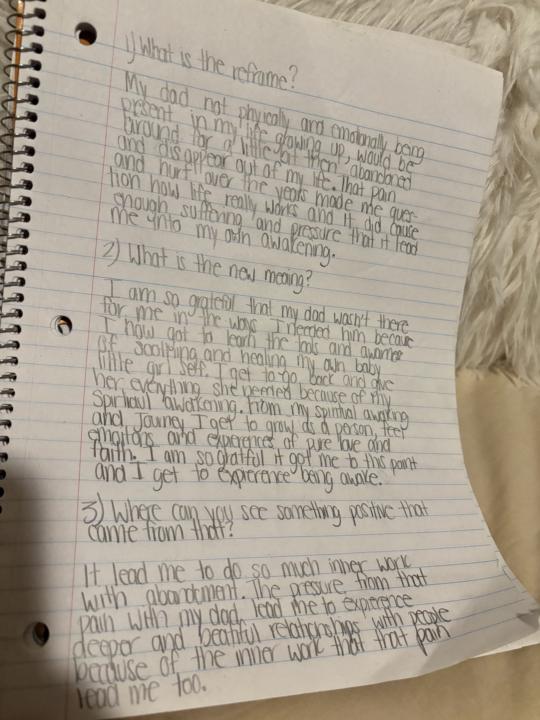 1) What is the reframe?
My dad not phyically and emotionally being
present in my life growing up, would be
around for a little bit then abandoned
and disappear out of my life. That pain
and hurt over the years made me ques-
tion how life really works and it did cause
enough suffering and pressure that it lead
me into my own awakening.
2) What is the new meaing?
I am so grateful that my dad wasn't there
for me in the ways I needed him because
I now got to learn the tools and awarnes
of soothing and healing my own baby
little girl self. I get to go back and give
her everything she needed because of my
Spiritual awakening. From my spiritual awaking
and Journey I get to grow as a person, feel
emotions and experences of pure love and
faith. I am so gratful it got me to this point
and I get to experence being awake.
3) Where can you see something positive that
came from that?
It lead me to do so much inner work
with abandoment. The presure from that
pain with my dad lead me to experence
deeper and beatiful relationships with people
because of the inner work that that pain
lead me too.